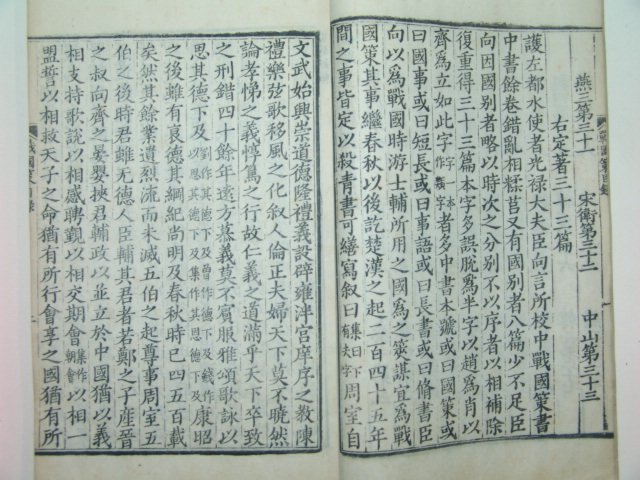 燕三第三十一 宋衛第三十二 中山第三十三
右定著三十三篇
護左都水使者光禄大夫臣向言所校中戰國策書
中書餘卷錯亂相糅莒又有國别者八篇少不足臣
向因國别者略以時次之分别不以序者以相補除
復重得三十三篇本字多誤脱爲半字以趙爲肖以
齊爲立如此字一本作類字者多中書本號或曰國策或
曰國事或曰短長或曰事語或曰長書或曰脩書臣
向以爲戰國時游士輔所用之國爲之筴謀宜爲戰
國策其事繼春秋以後訖楚漢之起二百四十五年
間之事皆定以殺青書可繕寫叙曰集曰下有夫字周室自
文武始興崇道德隆禮義設辟雍泮宫庠序之教陳
禮樂弦歌移風之化叙人倫正夫婦天下莫不曉然
論孝悌之義惇篤之行故仁義之道滿乎天下卒致
之刑錯四十餘年遠方慕義莫不賓服雅頌歌詠以
思其德下及劉作其德下及曾作德下及錢作德下及集作其恩德下及康昭
之後雖有衰德其綱紀尚明及春秋時已四五百載
矣然其餘業遺烈流而未滅五伯之起尊事周室五
伯之後時君雖无德人臣輔其君者若鄭之子産晉
之叔向齊之晏嬰挾君輔政以並立於中國猶以義
相支持歌説以相感聘覲以相交期會集作朝會以相一
盟誓以相救天子之命猶有所行會享之國猶有所